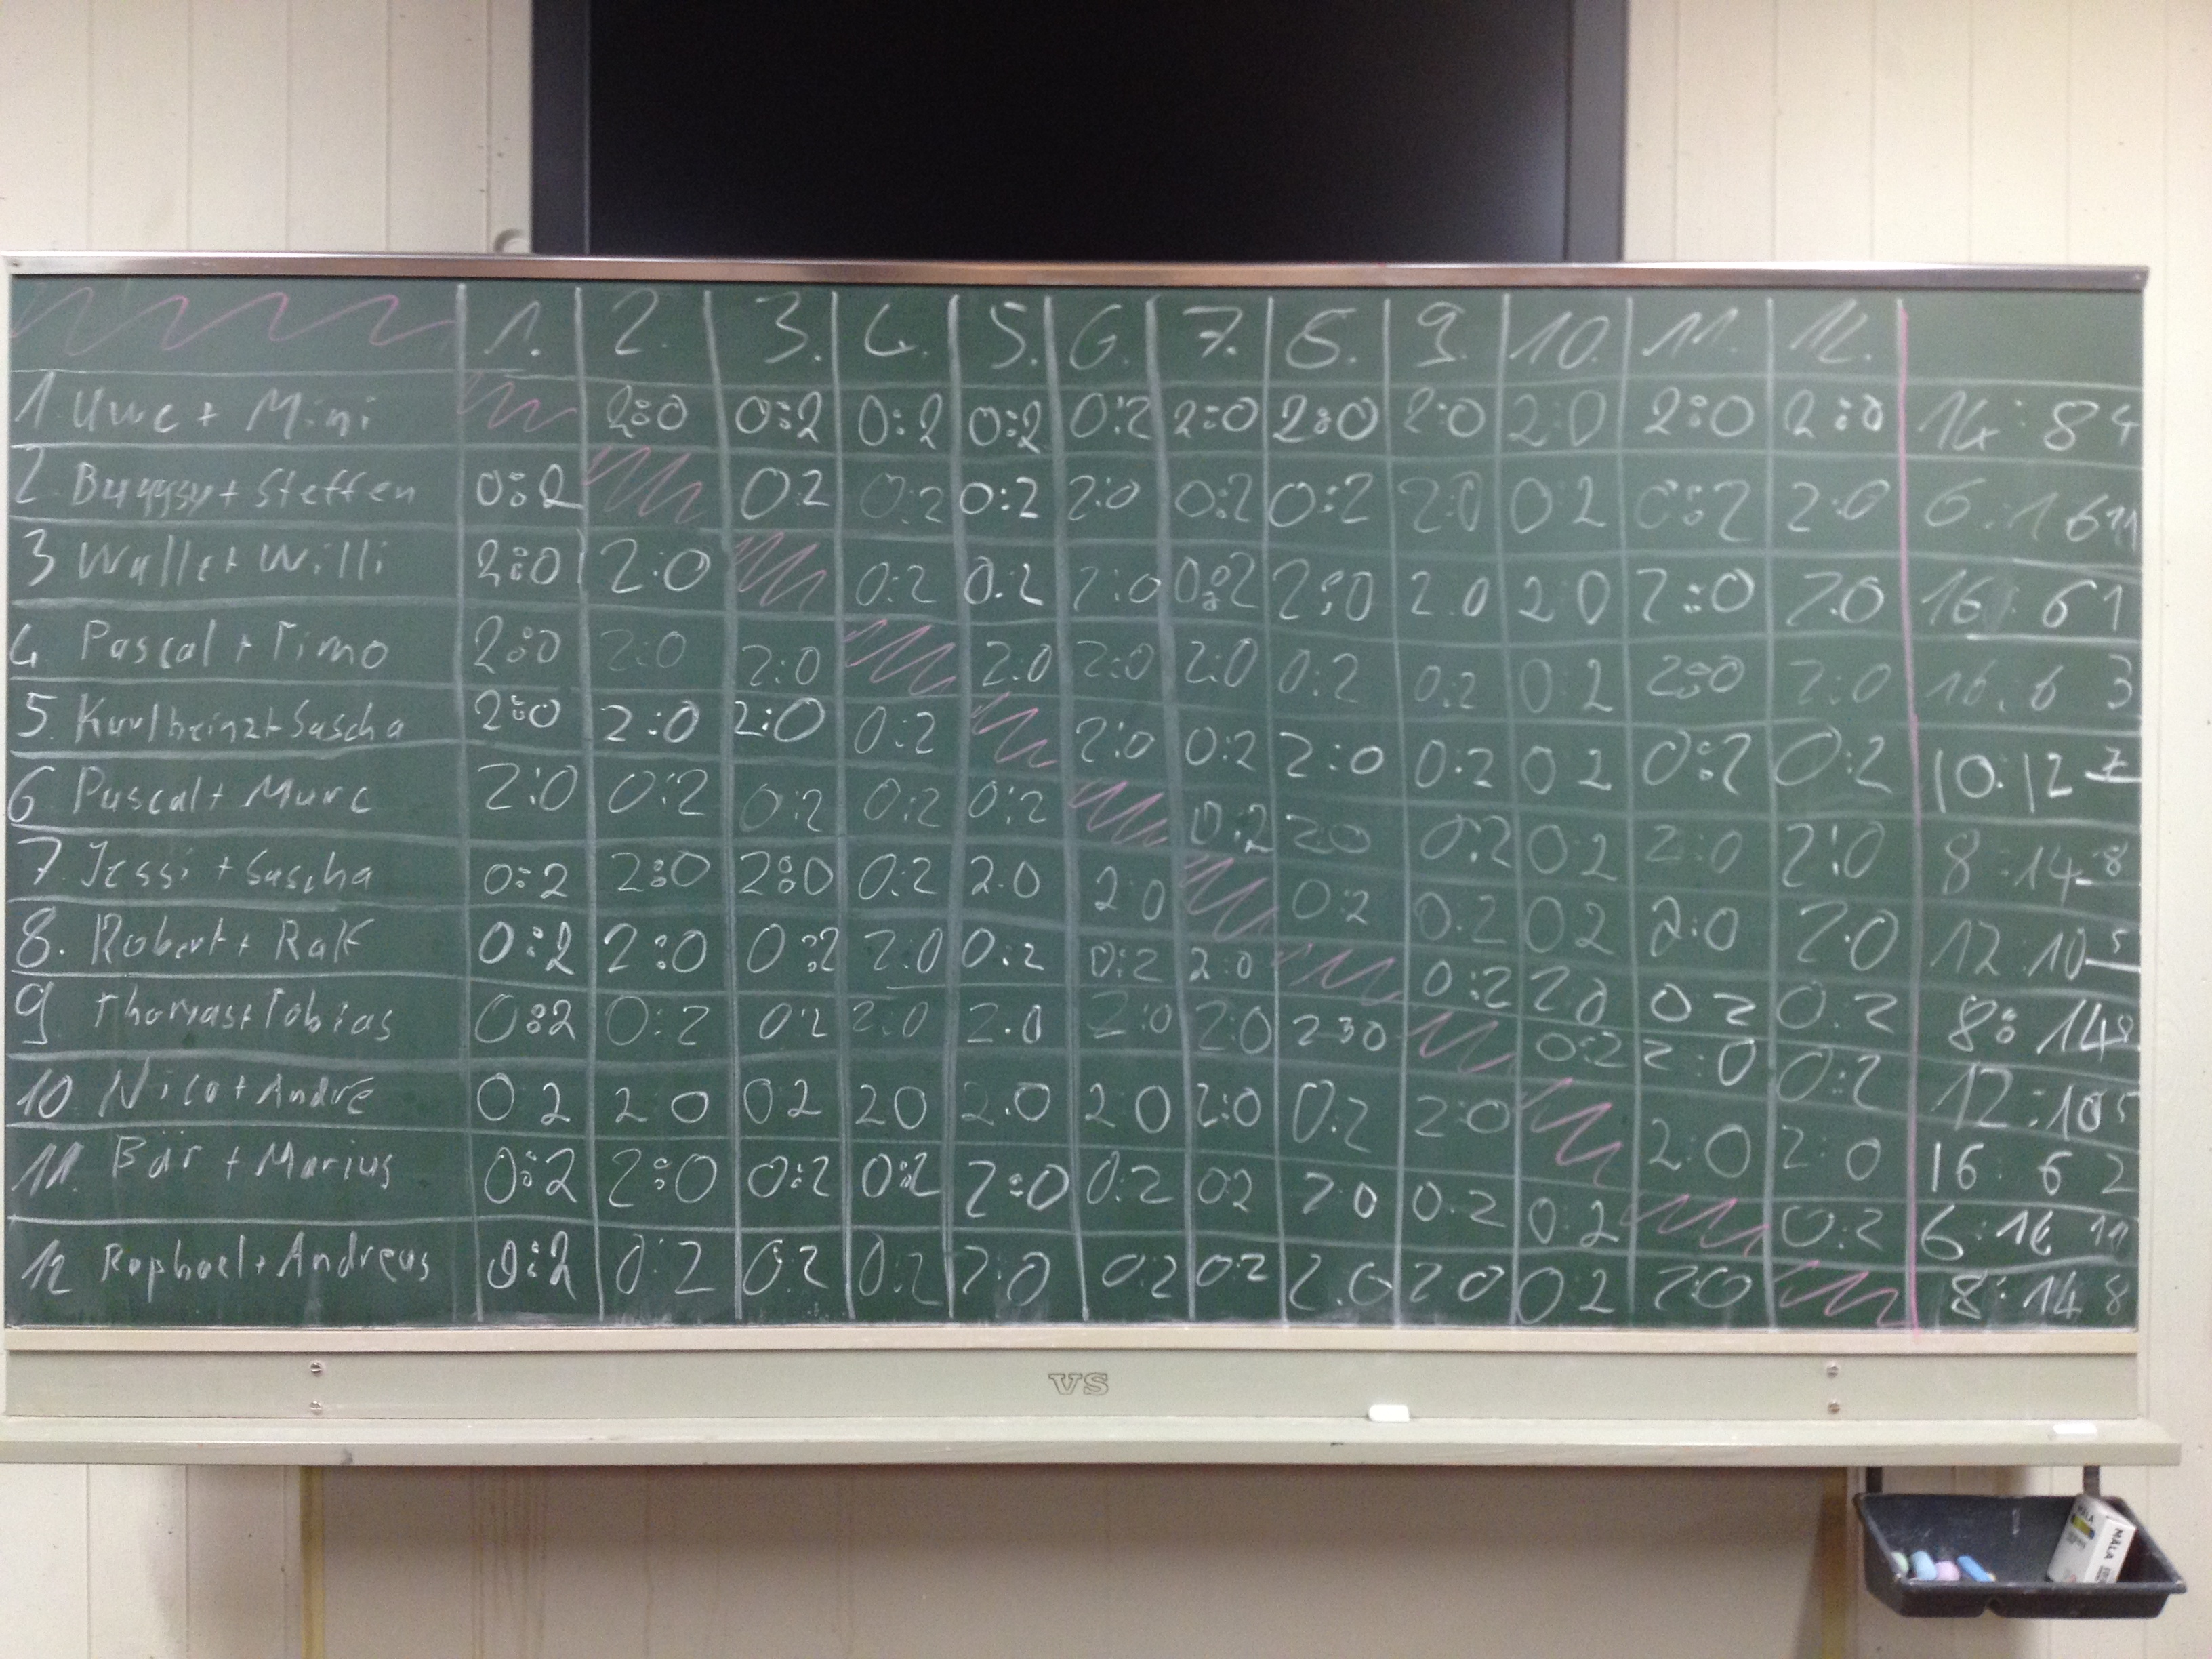 1. 2. 3. 4. 5. 6. 7. 8. 9. 10. 11. 12.
1. Uwe + Mini 2:0 0:2 0:2 0:2 0:2 2:0 2:0 2:0 2:0 2:0 2:0 14:8 4
2. Buggsy + Steffen 0:2 0:2 0:2 0:2 2:0 0:2 0:2 2:0 0:2 0:2 2:0 6:16 11
3 Walle + Willi 2:0 2:0 0:2 0:2 2:0 0:2 2:0 2:0 2:0 2:0 2:0 16:6 1
4. Pascal + Timo 2:0 2:0 2:0 2:0 2:0 2:0 0:2 0:2 0:2 2:0 2:0 16:6 3
5. Karlheinz + Sascha 2:0 2:0 2:0 0:2 2:0 0:2 2:0 0:2 0:2 0:2 0:2 10:12 7
6 Pascal + Marc 2:0 0:2 0:2 0:2 0:2 0:2 2:0 0:2 0:2 2:0 2:0 8:14 8
7. Jessi + Sascha 0:2 2:0 2:0 0:2 2:0 2:0 0:2 0:2 0:2 2:0 2:0 12:10 5
8. Robert + Ralf 0:2 2:0 0:2 2:0 0:2 0:2 2:0 0:2 2:0 0:2 0:2 8:14 8
9. Thomas + Tobias 0:2 0:2 0:2 2:0 2:0 2:0 2:0 2:0 0:2 2:0 0:2 12:10 5
10 Nico + André 0:2 2:0 0:2 2:0 2:0 2:0 2:0 0:2 2:0 2:0 2:0 16:6 2
11. Bär + Marius 0:2 2:0 0:2 0:2 2:0 0:2 0:2 2:0 0:2 0:2 0:2 6:16 11
12 Raphael + Andreas 0:2 0:2 0:2 0:2 2:0 0:2 0:2 2:0 2:0 0:2 2:0 8:14 8
VS
MALA
MALA